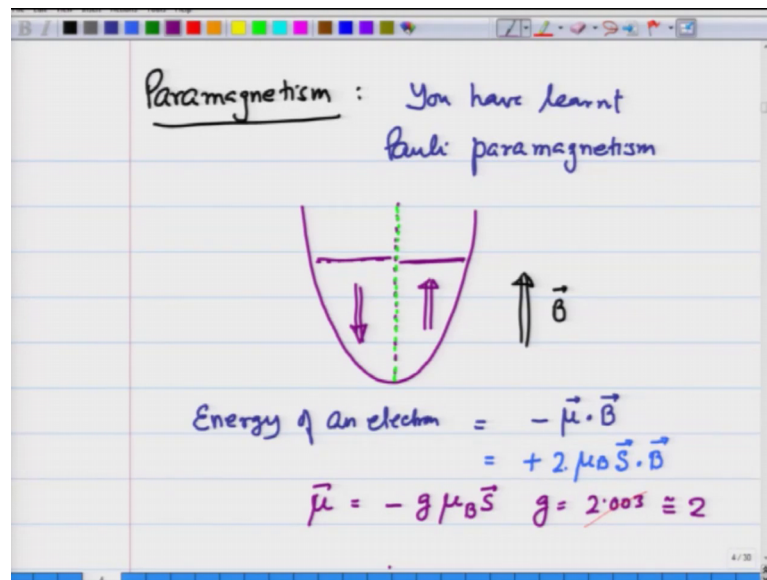 Paramagnetism : You have learnt
Pauli paramagnetism
B⃗
Energy of an electron = - μ⃗ · B⃗
= + 2. μB S⃗ · B⃗
μ⃗ = - g μB S⃗ g = 2.003 ≅ 2
4/30